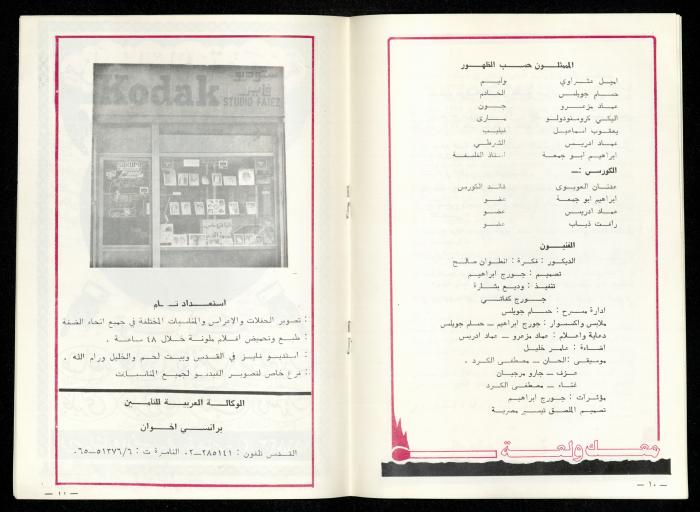 الممثلون حسب الظهور
اميل عشراوي وليم
حسام جويلس الخادم
عماد مزعرو جون
اليكي كرومنودولو ماري
يعقوب اسماعيل فيليب
عماد ادريس الشرطي
ابراهيم ابو جمعة استاذ الفلسفة
الكورس :ــ
عدنان العويوي قائد الكورس
ابراهيم ابو جمعة عضو
عماد ادريس عضو
رأفت ذياب عضو
الفنيون
الديكور : فكرة : انطوان صالح
تصميم : جورج ابراهيم
تنفيذ : وديع بشارة
جورج كفاتي
ادارة مسرح : حسام جويلس
ملابس واكسسوار : جورج ابراهيم ــ حسام جويلس
دعاية واعلام : عماد مزعرو ــ عماد ادريس
اضاءة : عامر خليل
موسيقى : الحان ــ مصطفى الكرد .
عزف ــ جارو مرجيان
غناء ــ مصطفى الكرد
مؤثرات : جورج ابراهيم
تصميم الملصق تيسير مصرية
ــ ١٠ ــ
ستوديو
فايز
Kodak
STUDIO FAIEZ
استعداد تام
: تصوير الحفلات والاعراس والمناسبات المختلفة في جميع انحاء الضفة
: طبع وتحميض افلام ملونة خلال ٤٨ ساعة .
: استديو فايز في القدس وبيت لحم والخليل ورام الله .
: فرع خاص لتصوير الفيديو لجميع المناسبات
الوكالة العربية للتأمين
برانسي اخوان
القدس تلفون : ٢٨٥١٤١ــ٠٢ الناصرة ت : ٥١٣٧٦/٦ــ٠٦٥
ــ ١١ ــ